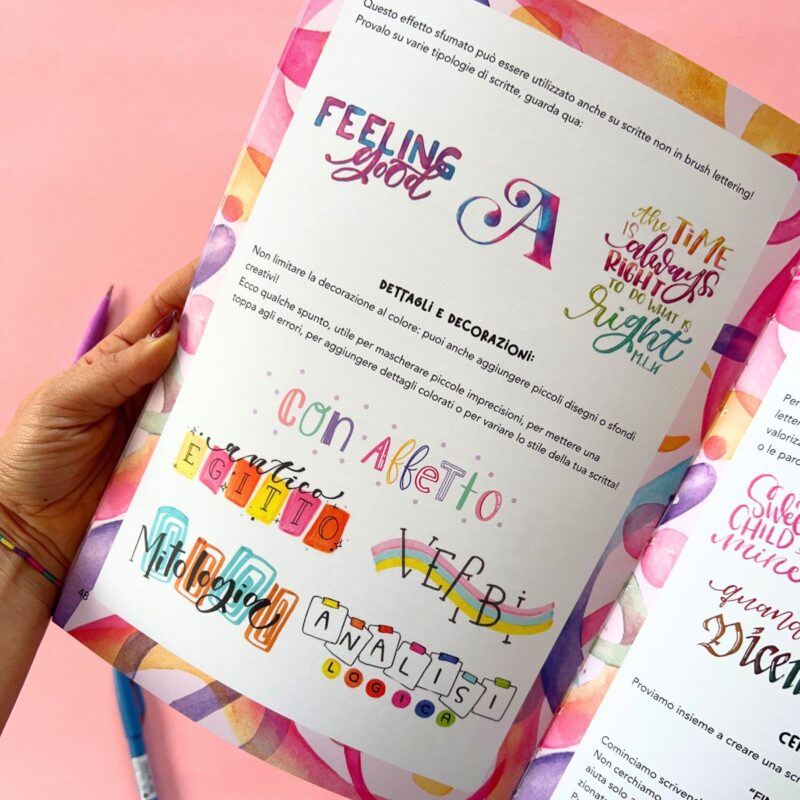 Questo effetto sfumato può essere utilizzato anche su scritte non in brush lettering!
Provalo su varie tipologie di scritte, guarda qua:
FEELING
good
A
the TIME
IS always
RIGHT
TO DO WHAT IS
right
M.L.K
DETTAGLI E DECORAZIONI:
Non limitare la decorazione al colore: puoi anche aggiungere piccoli disegni o sfondi
creativi!
Ecco qualche spunto, utile per mascherare piccole imprecisioni, per mettere una
toppa agli errori, per aggiungere dettagli colorati o per variare lo stile della tua scritta!
CON AFFETTO
antico
EGITTO
VERBI
Mitologia
ANALISI
LOGICA
48
Per
valorizz
o le paro
SWEET
CHILD
mine
quando
Dicem
Proviamo insieme a creare una scri
"FIN
Cominciamo scrivend
Non cerchiamo
aiuta solo a